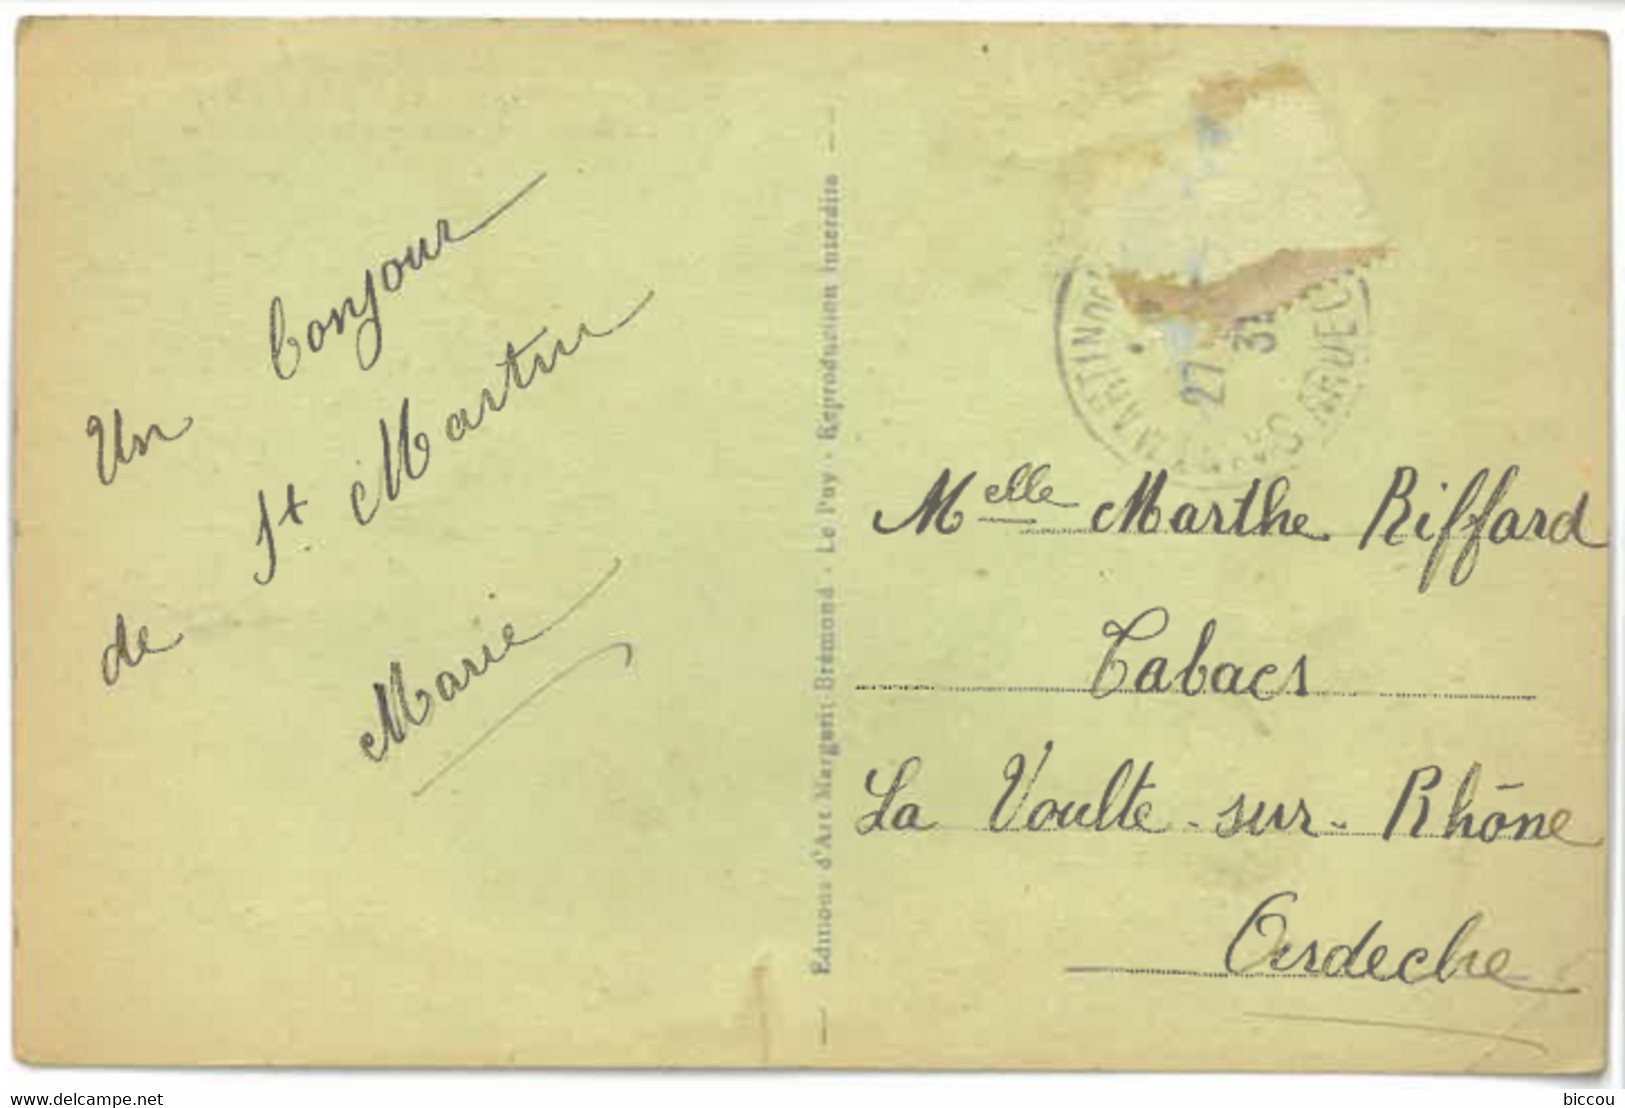 Un bonjour
de St Martin
Marie
Editions d'Art Margerit-Brémond - Le Puy - Reproduction Interdite
27
Melle Marthe Riffard
Tabacs
La Voulte-sur-Rhône
Ardèche
delcampe.net
biccou